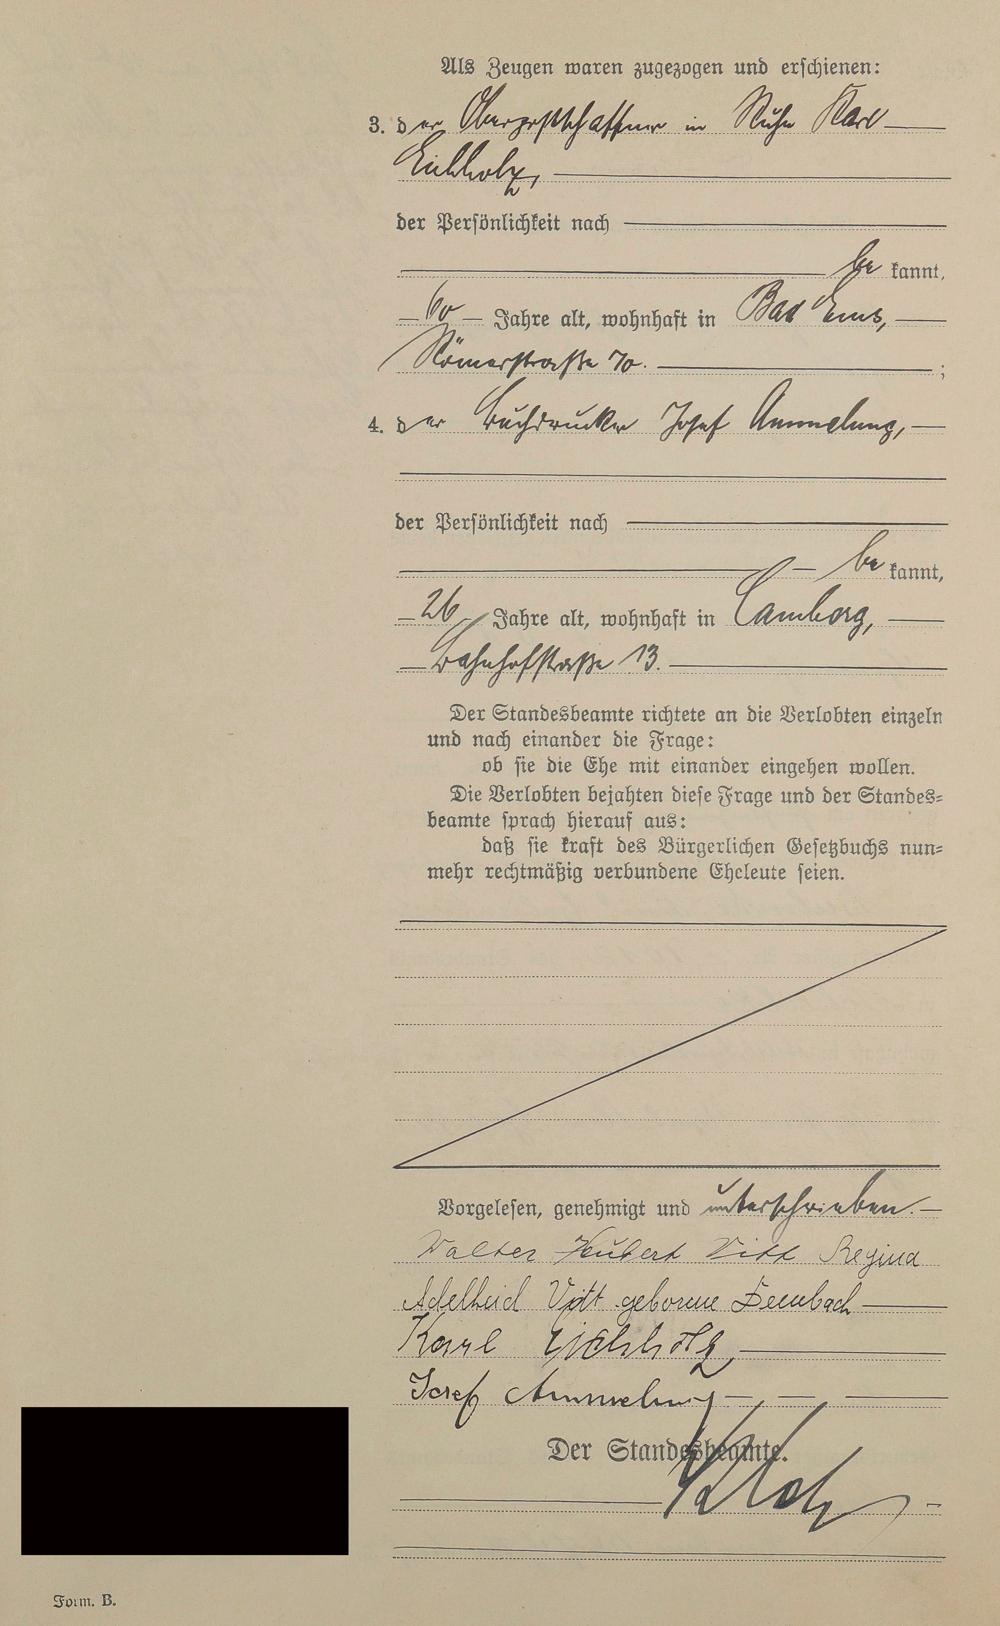 Als Zeugen waren zugezogen und erschienen:
3. der Oberpostschaffner in Ruhe Karl
Eichholz,
der Persönlichkeit nach
be kannt,
60 Jahre alt, wohnhaft in Bad Ems,
Römerstraße 70. ;
4. der Buchdrucker Josef Ammelung,
der Persönlichkeit nach
be kannt,
26 Jahre alt, wohnhaft in Camberg,
Bahnhofstraße 13.
Der Standesbeamte richtete an die Verlobten einzeln
und nach einander die Frage:
ob sie die Ehe mit einander eingehen wollen.
Die Verlobten bejahten diese Frage und der Standes=
beamte sprach hierauf aus:
daß sie kraft des Bürgerlichen Gesetzbuchs nun=
mehr rechtmäßig verbundene Eheleute seien.
Vorgelesen, genehmigt und unterschrieben.
Walter Hubert Vitt Regina
Adelheid Vitt geborene Dembach
Karl Eichholz
Josef Ammelung
Der Standesbeamte.
Form. B.